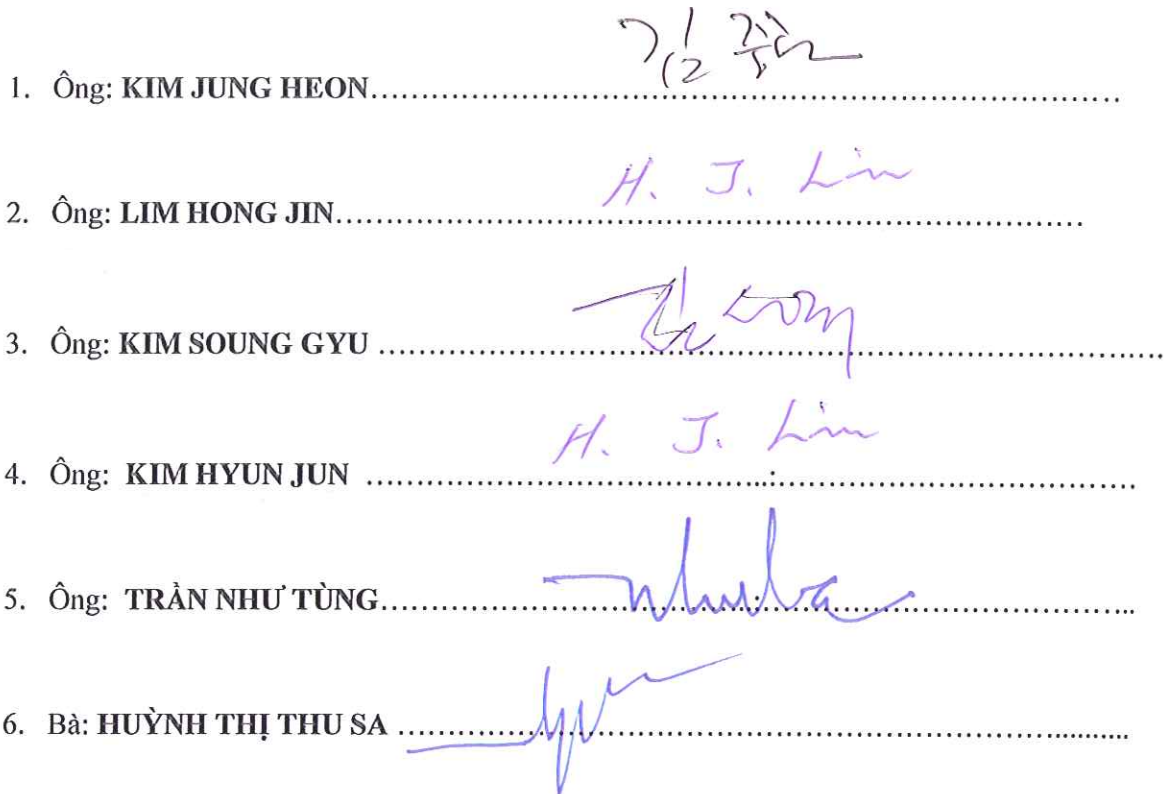 김중헌
1. Ông: KIM JUNG HEON........................................................................
H. J. Lim
2. Ông: LIM HONG JIN........................................................................
3. Ông: KIM SOUNG GYU ........................................................................
H. J. Lim
4. Ông: KIM HYUN JUN ........................................................................
5. Ông: TRẦN NHƯ TÙNG........................................................................
6. Bà: HUỲNH THỊ THU SA ........................................................................